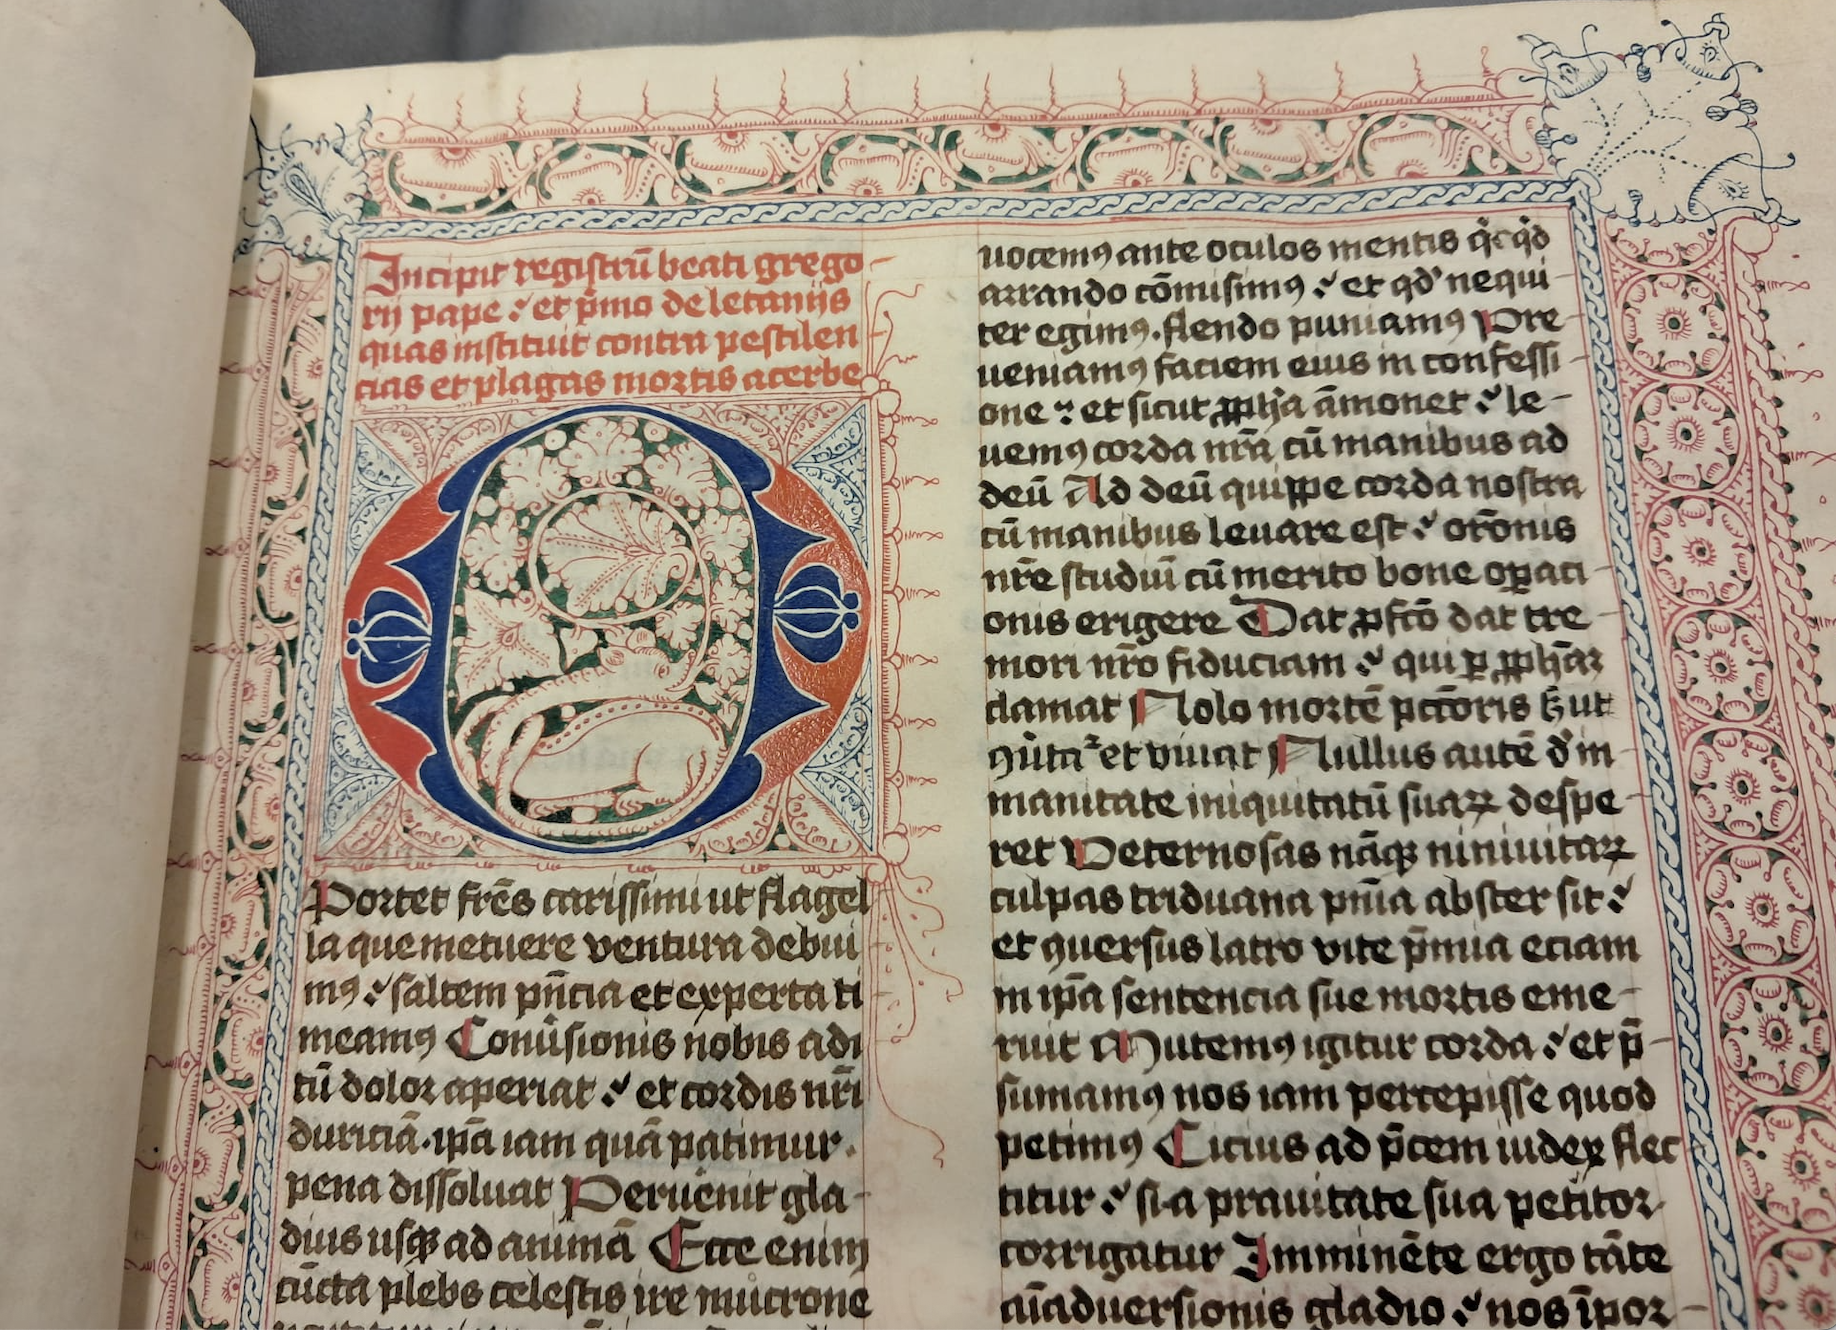 Incipit registrū beati grego-
rij pape ⁊ et p̄mo de letanijs
quas instituit contra pestilen
cias et plagas mortis acerbe
O
Portet frēs carissimi ut flagel
la que metuere ventura debui
mꝰ ⁊ saltem pn̄cia et experta ti
meamꝰ Conūsionis nobis adi
tū dolor aperiat ⁊ et cordis nr̄i
duriciā. ip̄a iam quā patimur.
pena dissoluat Peruēnit gla-
dius usqꝫ ad animā Ecce enim
cūcta plebs celestis ire mucrone
uocemꝰ ante oculos mentis
arrando cōmisimꝰ ⁊ et qd̓ nequi-
ter egimꝰ. flendo puniamꝰ Pre-
ueniamꝰ faciem eius in confessi-
one ⁊ et sicut ꝓph̄a āmonet ⁊ le-
uemꝰ corda nr̄a cū manibus ad
deū Ad deū quippe corda nostra
cū manibus leuare est ⁊ or̄onis
nr̄e studiū cū merito bone oꝑati-
onis erigere Dat ꝓfcō dat tre-
mori nr̄o fiduciam ⁊ qui ꝑ ꝓph̄az
clamat Nolo mortē pctōris ut
ꝯūtat᷑ et viuat Nullus autē d̓ in-
manitate iniquitatū suaꝝ despe-
ret Veternosas nāqꝫ niniuitaꝝ
culpas triduana pn̄ia abster sit ⁊
et ꝯuersus latro vite p̄mia eciam
in ip̄a sentencia sue mortis eme-
ruit Mutemꝰ igitur corda ⁊ et p̄-
sumamꝰ nos iam percepisse quod
petimꝰ Cicius ad p̄cem iudex flec
titur ⁊ si a prauitate sua petitor
corrigatur Imminēte ergo tāte
aīaduersionis gladio ⁊ nos īpor-